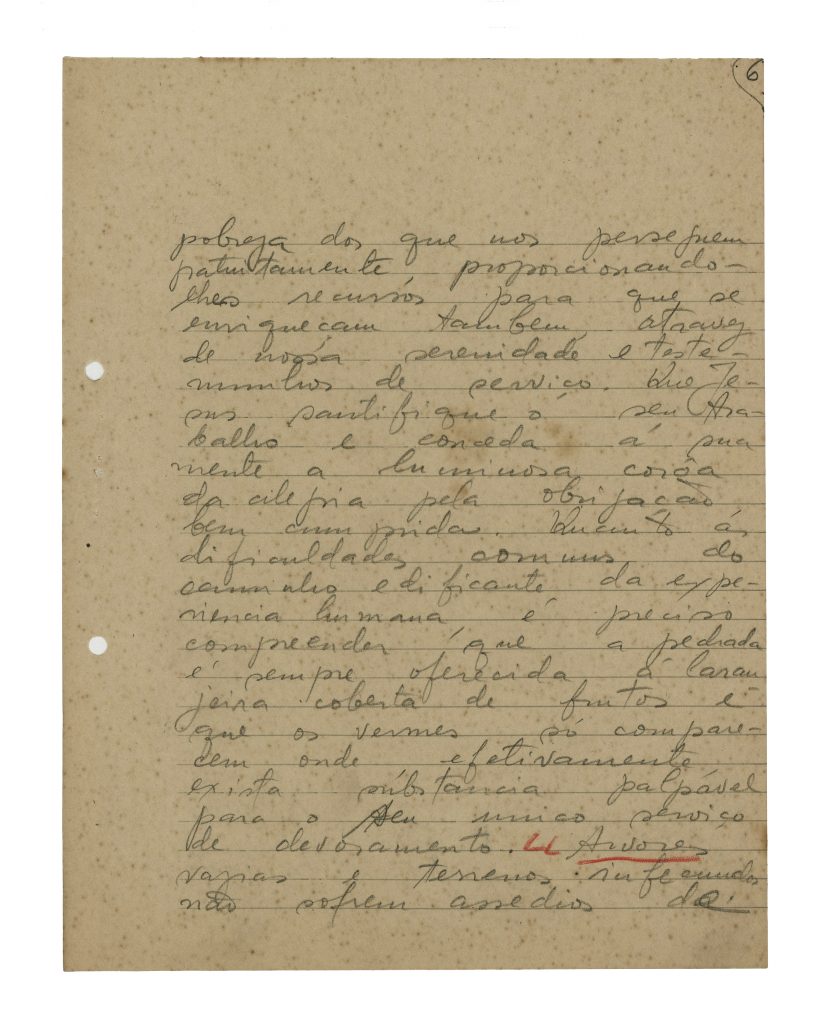 6
pobreza dos que nos perseguem
gratuitamente, proporcionando-
lhes recursos para que se
enriqueçam tambem, atravez
de nossa serenidade e teste-
munhos de serviço. Que Je-
sus santifique o seu tra-
balho e conceda á sua
mente a luminosa corôa
da alegria pela obrigação
bem cumprida. Quanto ás
dificuldades comuns do
caminho edificante da expe-
riencia humana, é preciso
compreender que a pedrada
é sempre oferecida á laran
jeira coberta de frutos e
que os vermes só compare-
cem onde efetivamente
exista substancia palpável
para o seu unico serviço
de devoramento. Arvores
vazias e terrenos infecundos
não sofrem assedios de